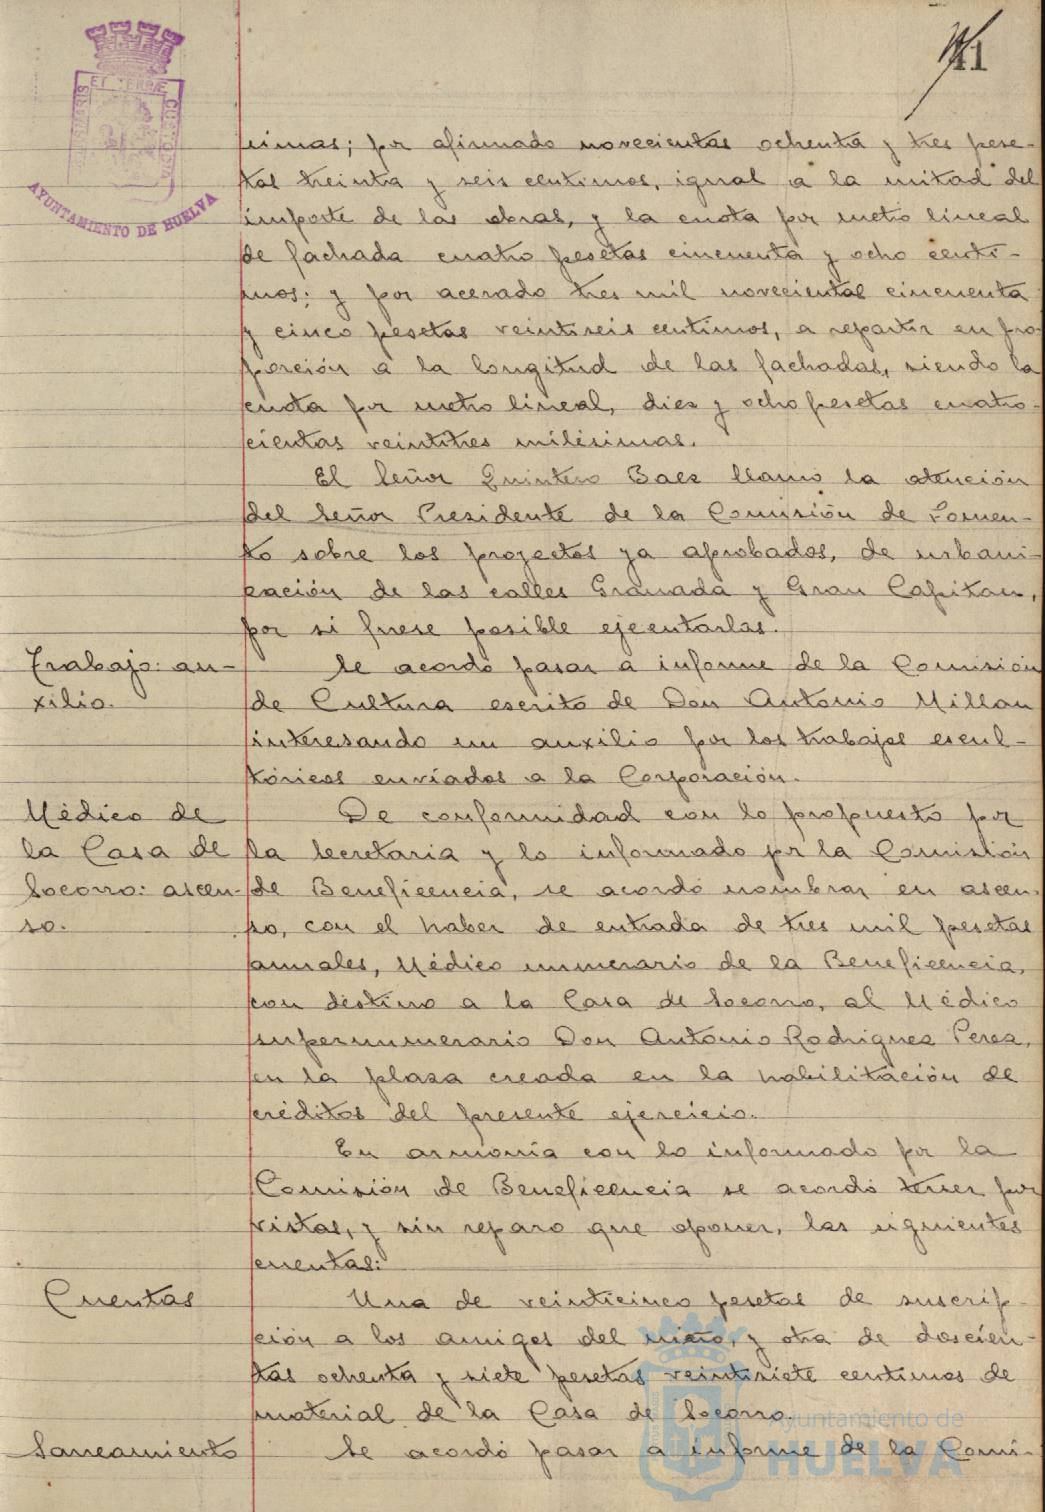 41
ET TERRÆ
CUSTODIA
AYUNTAMIENTO DE HUELVA
simas; por afirmado novecientas ochenta y tres pese-
tas treinta y seis centimos, igual a la mitad del
importe de las obras, y la cuota por metro lineal
de fachada cuatro pesetas cincuenta y ocho centi-
mos; y por acerado tres mil novecientas cincuenta
y cinco pesetas veintiseis centimos, a repartir en pro
porción a la longitud de las fachadas, siendo la
cuota por metro lineal, diez y ocho pesetas cuatro-
cientas veintitres milésimas.
El Señor Quintero Baez llamó la atención
del Señor Presidente de la Comisión de Fomen-
to sobre los proyectos ya aprobados, de urbani-
zación de las calles Granada y Gran Capitan,
por si fuese posible ejecutarlas.
Trabajo: au-
xilio.
Se acordó pasar a informe de la Comisión
de Cultura escrito de Don Antonio Millan
interesando un auxilio por los trabajos escul-
tóricos enviados a la Corporación.
Médico de
la Casa de
Socorro: ascen-
so.
De conformidad con lo propuesto por
la Secretaria y lo informado por la Comisión
de Beneficencia, se acordó nombrar en ascen-
so, con el haber de entrada de tres mil pesetas
anuales, Médico numerario de la Beneficencia,
con destino a la Casa de Socorro, al Médico
supernumerario Don Antonio Rodriguez Perez,
en la plaza creada en la habilitación de
créditos del presente ejercicio.
En armonía con lo informado por la
Comisión de Beneficencia se acordó tener por
vistas, y sin reparo que oponer, las siguientes
cuentas:
Cuentas
Una de veinticinco pesetas de suscrip-
ción a los amigos del niño, y otra de doscien-
tas ochenta y siete pesetas veintisiete centimos de
material de la Casa de Socorro.
Saneamiento
Se acordó pasar a informe de la Comi-
Ayuntamiento de
HUELVA